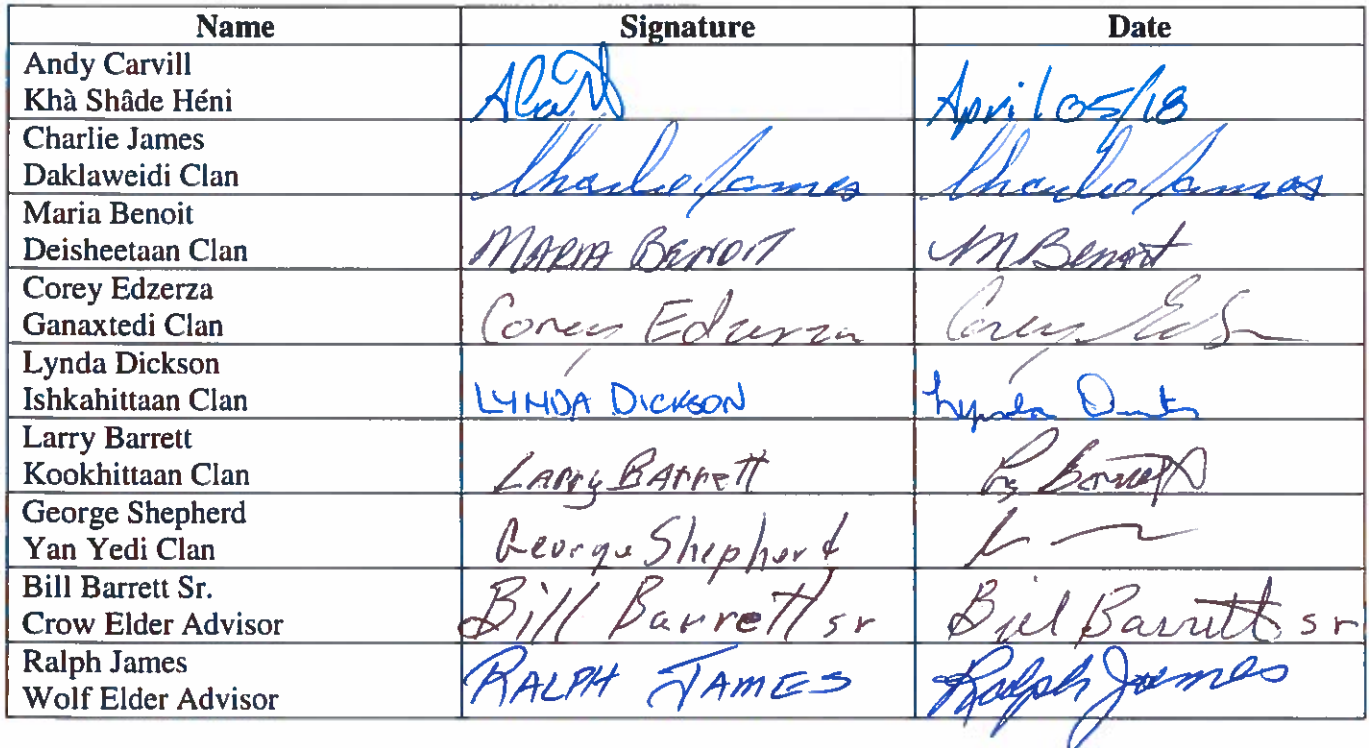 Name Signature Date
Andy Carvill
Khà Shâde Héni April 05/18
Charlie James
Daklaweidi Clan Charlie James Charlie James
Maria Benoit
Deisheetaan Clan MARIA BENOIT M Benoit
Corey Edzerza
Ganaxtedi Clan Corey Edzerza Corey
Lynda Dickson
Ishkahittaan Clan LYNDA DICKSON Lynda
Larry Barrett
Kookhittaan Clan LARRY BARRETT Barrett
George Shepherd
Yan Yedi Clan George Shepherd
Bill Barrett Sr.
Crow Elder Advisor Bill Barrett sr Bill Barrett sr
Ralph James
Wolf Elder Advisor RALPH JAMES Ralph James